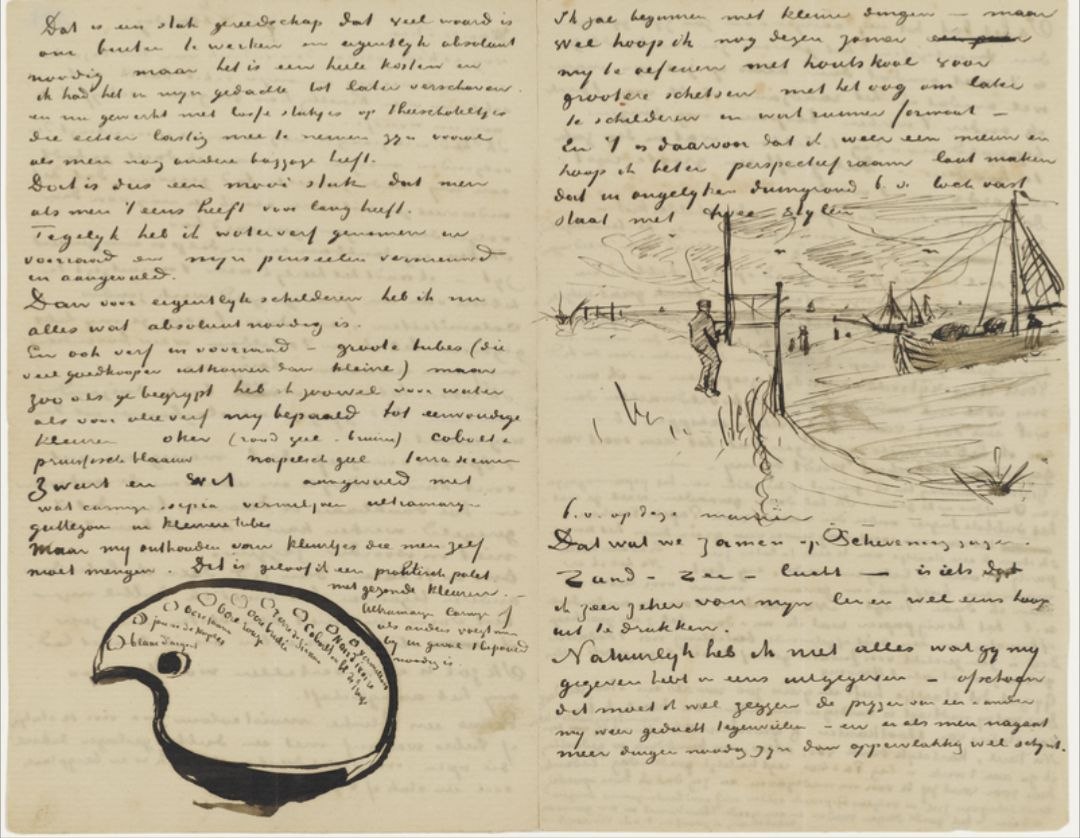 Dat is een stuk gereedschap dat veel waard is
om buiten te werken en eigentlyk absoluut
noodig maar het is een heele kosten en
ik had het in myn gedachte tot later verschoven.
en nu gewerkt met losse stukjes op theeschoteltjes
die echter lastig mee te nemen zyn vooral
als men nog andere baggage heeft.
Dat is dus een mooi stuk dat men
als men 't eens heeft voor lang heeft.
Tegelyk heb ik waterverf genomen en
voorraad en myn penseelen vernieuwd
en aangevuld.
Dan voor eigentlyk schilderen heb ik nu
alles wat absoluut noodig is.
En ook verf in voorraad – groote tubes (die
veel goedkooper uitkomen dan kleine) maar
zoo als ge begrypt heb ik zoowel voor water
als voor olieverf my bepaald tot eenvoudige
kleuren oker (rood geel - bruin) cobolt &
pruissisch blaauw napelsch geel terra sienna
zwart en wit aangevuld met
wat carmyn sepia vermiljoen ultramaryn
guttegom in kleinere tubes
Maar my onthouden van kleurtjes die men zelf
moet mengen. Dit is geloof ik een praktisch palet
met gezonde kleuren. –
Ultramaryn Carmyn of
iets anders voegt men
by in geval 't bepaald
noodig is
blanc d'argent
jaune de Naples
ocre jaune
ocre rouge
ocre brulée
terre de sienne
Cobolt
Noir d'ivoire
vermillon
Ik zal beginnen met kleine dingen – maar
wel hoop ik nog dezen zomer
my te oefenen met houtskool voor
grootere schetsen met het oog om later
te schilderen in wat ruimer formaat –
En 't is daarvoor dat ik weer een nieuw en
hoop ik beter perspectiefraam laat maken
dat in ongelyken duingrond b. v. toch vast
staat met twee stylen
b. v. op deze manier
Dat wat we zamen op Scheveningen zagen.
Zand – zee – lucht — is iets dat
ik zeer zeker van myn leven wel eens hoop
uit te drukken.
Natuurlyk heb ik niet alles wat gy my
gegeven hebt in eens uitgegeven – ofschoon
dit moet ik wel zeggen de pryzen van een & ander
my weer geducht tegenvielen – en er als men nagaat
meer dingen noodig zyn dan oppervlakkig wel schynt.